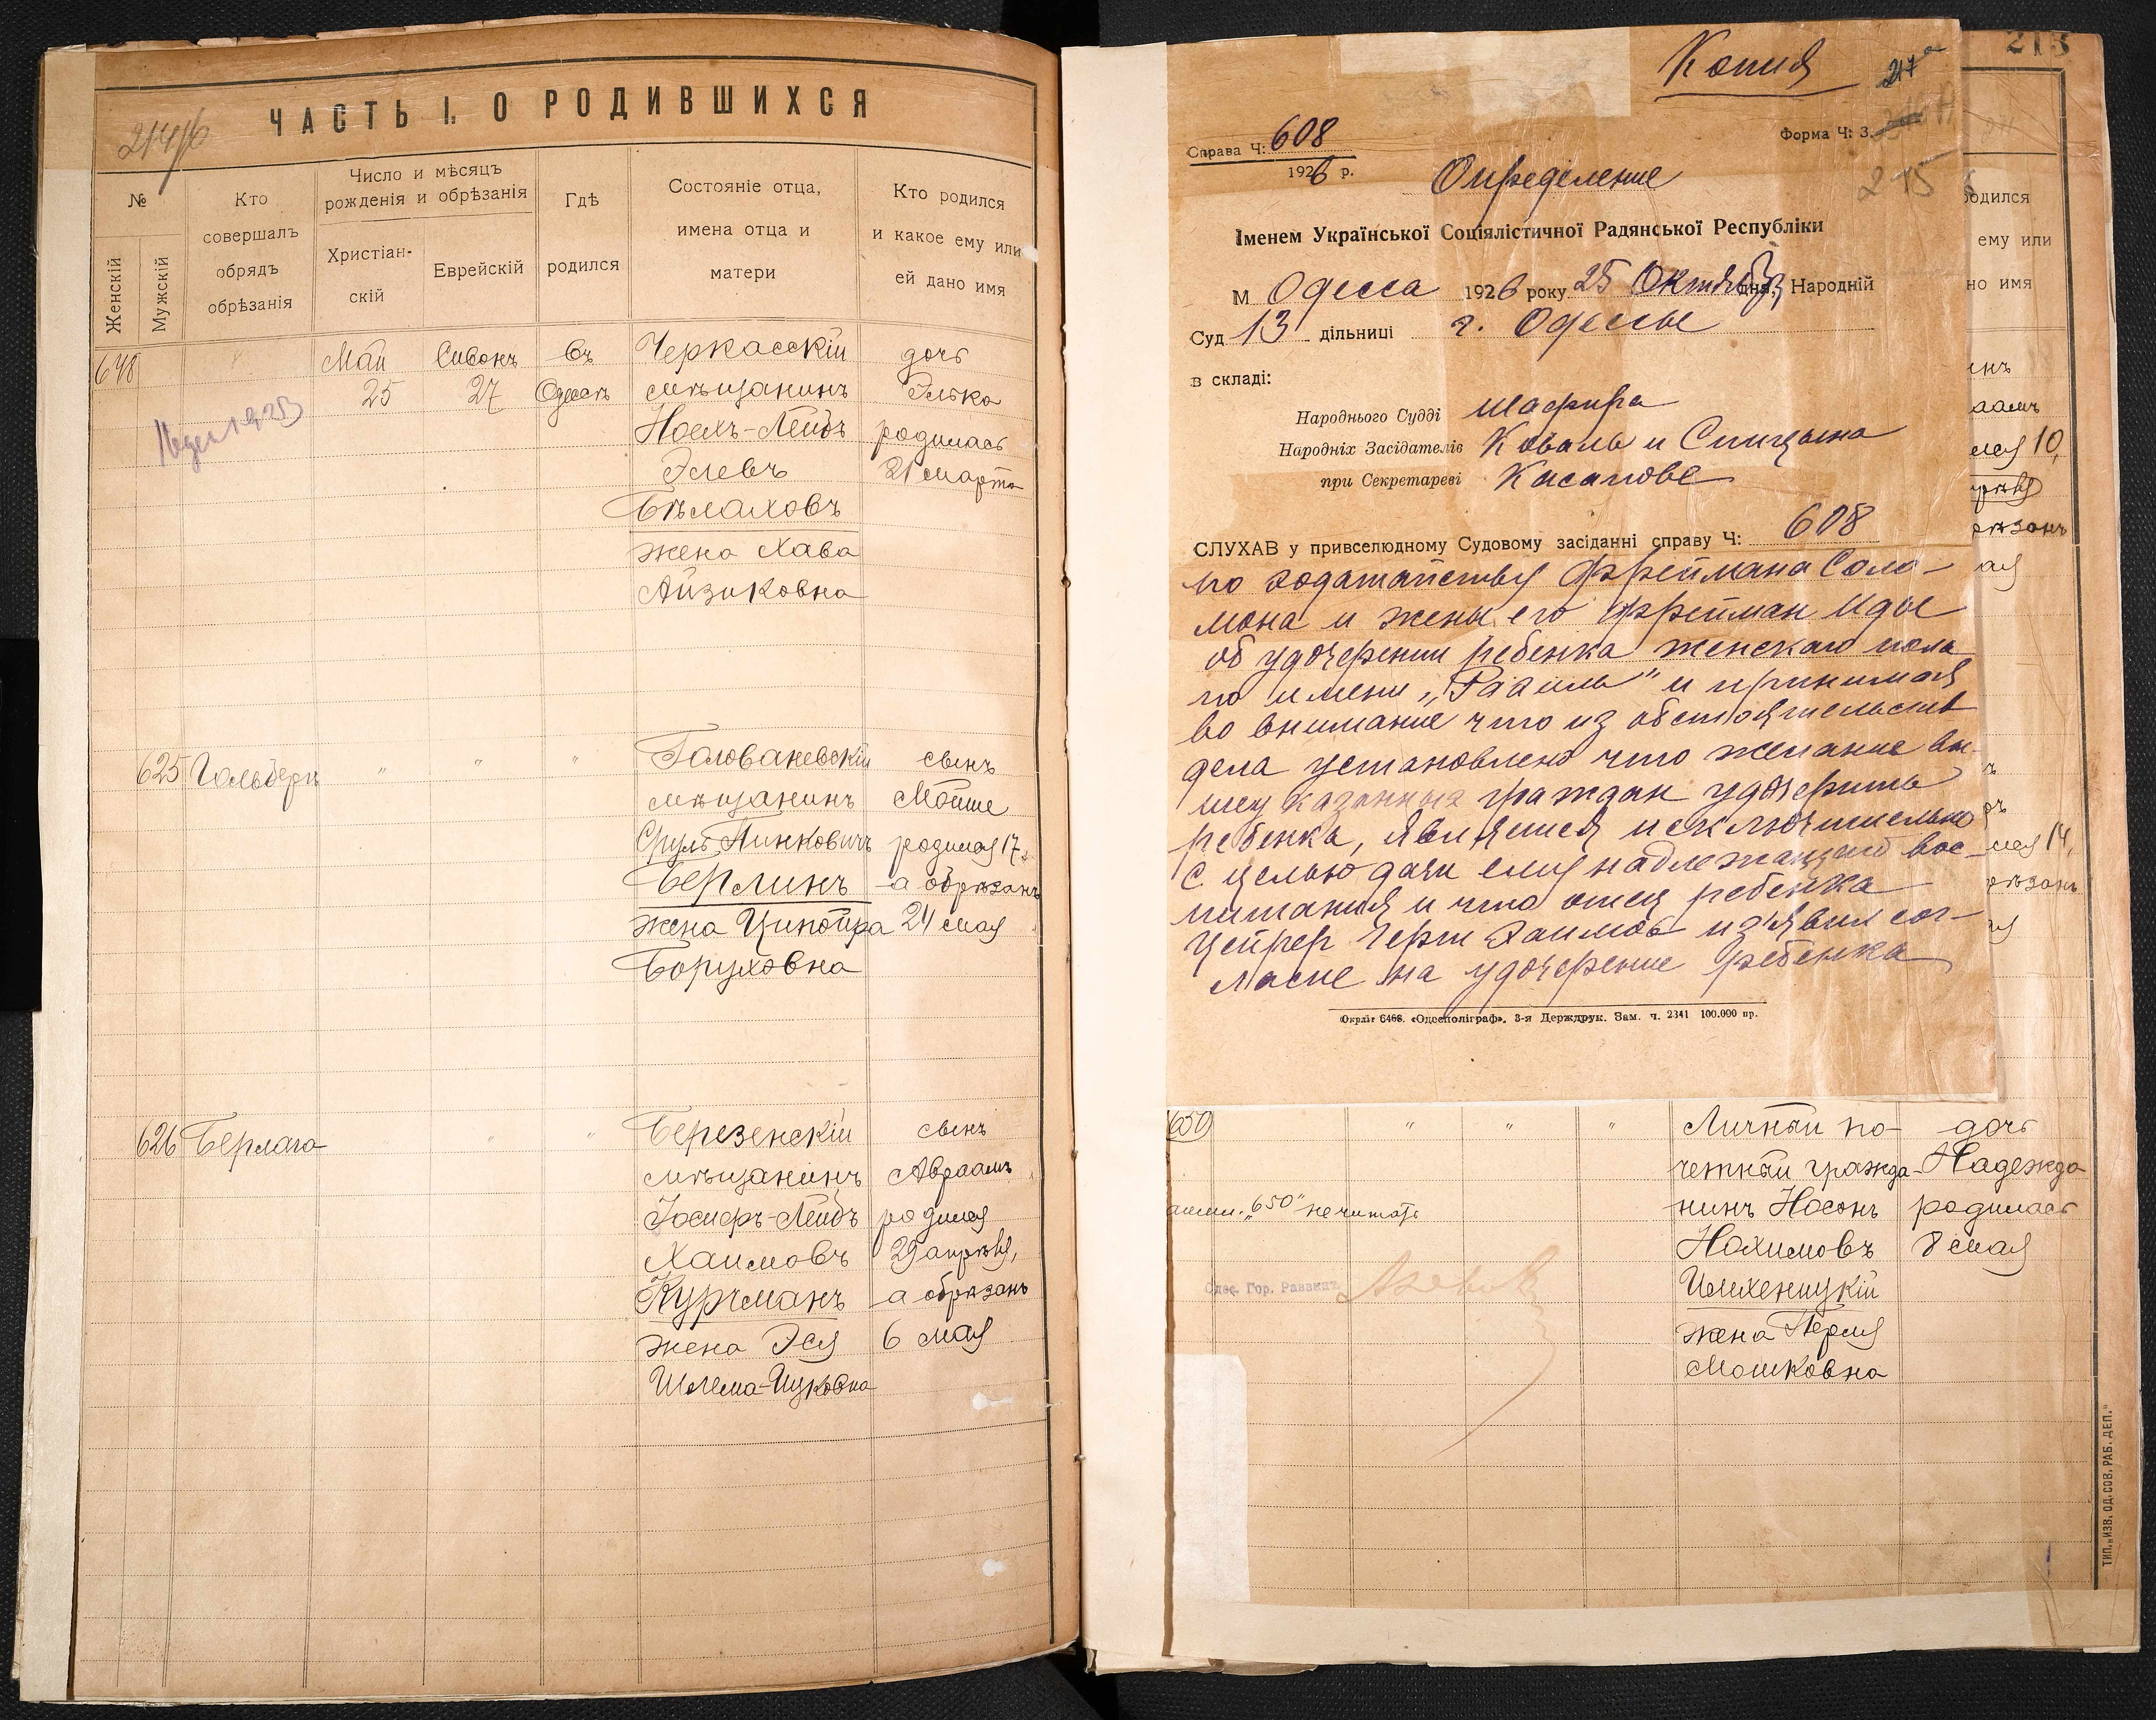 ЧАСТЬ I. О РОДИВШИХСЯ
№
Женскій
Мужскій
Кто
совершалъ
обрядъ
обрѣзанія
Число и мѣсяцъ
рожденія и обрѣзанія
Христіан-
скій
Еврейскій
Гдѣ
родился
Состояніе отца,
имена отца и
матери
Кто родился
и какое ему или
ей дано имя
648
Май
25
Сивонъ
27
Въ
Одессѣ
Черкасскій
мѣщанинъ
Ноехъ-Лейбъ
Элевъ
Бѣлаховъ
жена Хава
Айзиковна
дочь
Элька
родилась
21 марта
625
Гольберъ
" " "
Голованевскій
мѣщанинъ
Сруль Пинковичъ
Берлинъ
жена Ципойра
Боруховна
сынъ
Мойше
родился 17,
а обрѣзанъ
24 мая
626
Берлаго
" "
Березенскій
мѣщанинъ
Іосифъ-Лейбъ
Хаимовъ
Курчманъ
жена Эся
Шлема-Ицковна
сынъ
Авраамъ
родился
29 апрѣля,
а обрѣзанъ
6 мая
Копия
217а
213
Справа Ч: 608
1926 р.
Форма Ч: 3.
215
Определение
Іменем Української Соціялістичної Радянської Республіки
М Одесса 1926 року 25 Октября дня, Народній
Суд 13 дільниці г. Одессы
в складі:
Народнього Судді Шафира
Народніх Засідателів Коваль и Спицына
при Секретареві Касапове
СЛУХАВ у привселюдному Судовому засіданні справу Ч: 608
по ходатайству Фрѣймана Соло-
мона и жены его Фрейман Иды
об удочерении ребенка женскаго пола
по имени „Рахиль" и принимая
во внимание что из обстоятельств
дела установлено что желание вы-
шеуказанных граждан удочерить
ребенка, является исключительно
с целью дачи ему надлежащего вос-
питания и что отец ребенка
Цейгер Герш Хаимов из'явил сог-
ласие на удочерение ребенка
Окрліт 6466. «Одесполіграф», 3-я Держдрук. Зам. ч. 2341 100.000 пр.
одился
ему или
но имя
инъ
аамъ
лся 10,
прѣля
рѣзанъ
ая
лся 14,
рѣзанъ
650
" " "
Личный по-
четный гражда-
нинъ Носонъ
Нохимовъ
Шлехеницкій
жена Перля
Мошковна
дочь
Надежда
родилась
8 мая
„650" не читать
Одес. Гор. Раввинъ
ТИП. „ИЗВ. ОД. СОВ. РАБ. ДЕП."